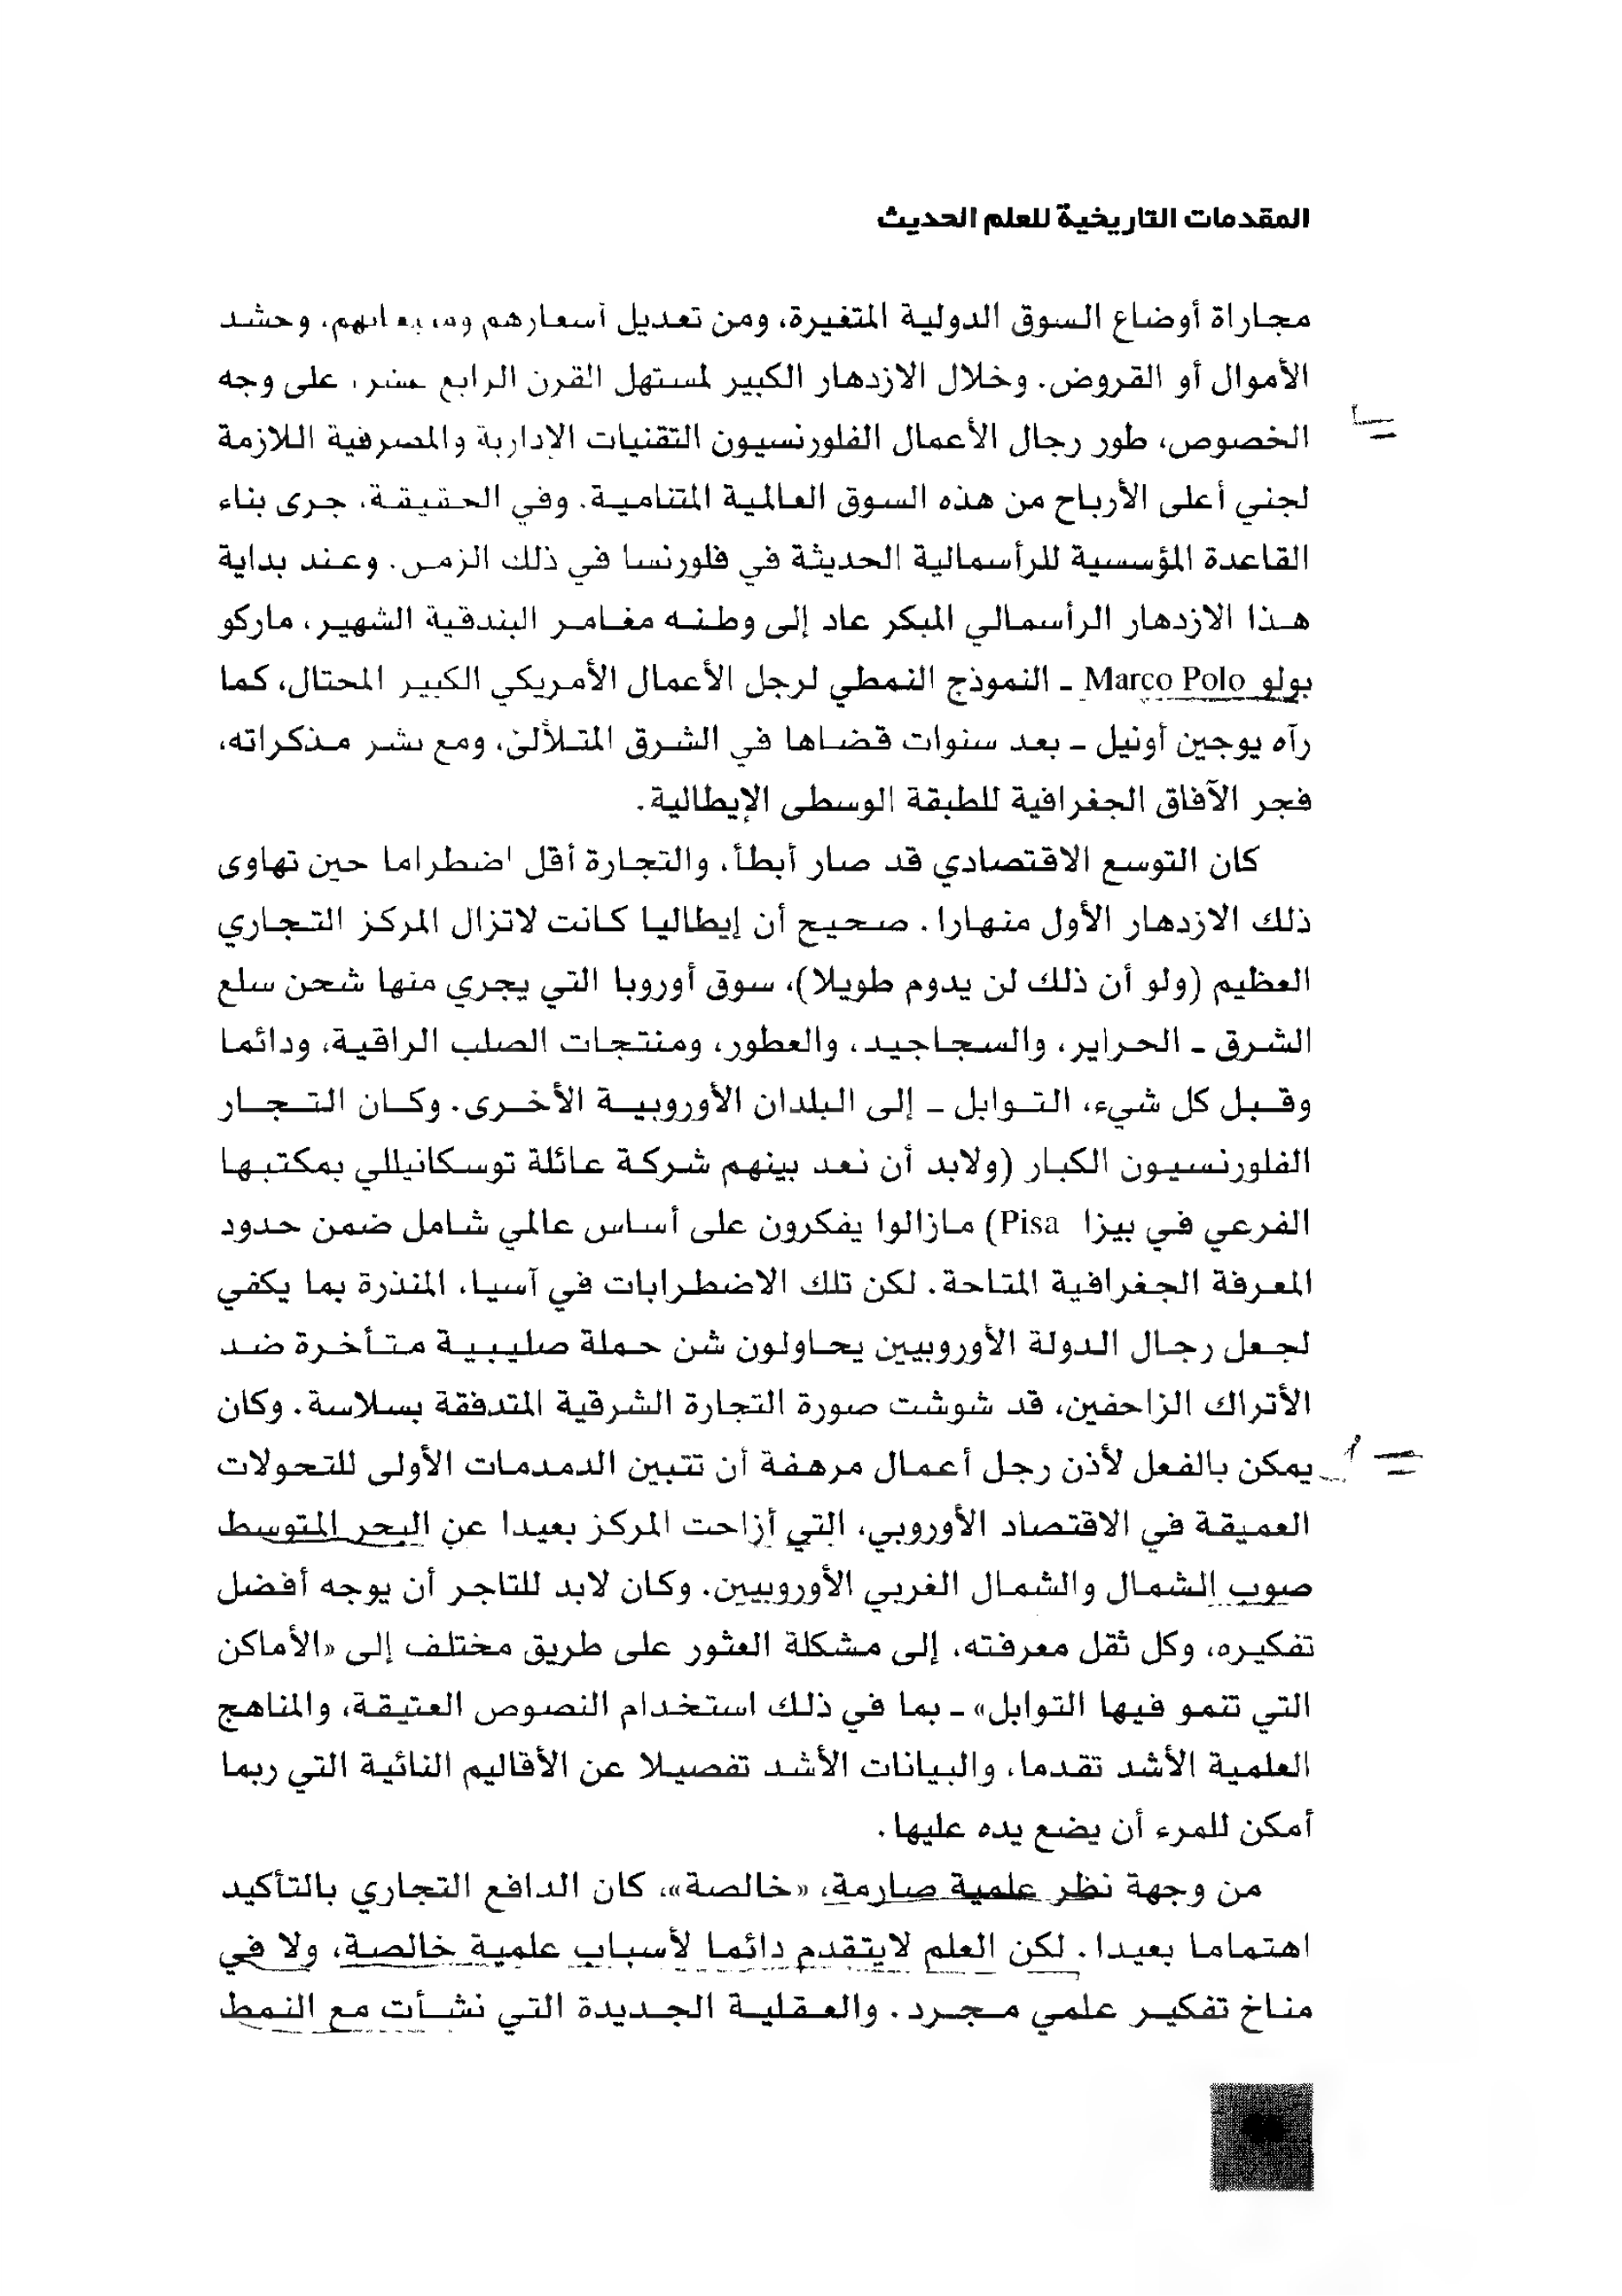 المقدمات التاريخية للعلم الحديث
مجاراة أوضاع السوق الدولية المتغيرة، ومن تعديل أسعارهم وحشد
الأموال أو القروض. وخلال الازدهار الكبير لمستهل القرن الرابع عشر، على وجه
الخصوص، طور رجال الأعمال الفلورنسيون التقنيات الإدارية والمصرفية اللازمة
لجني أعلى الأرباح من هذه السوق العالمية المتنامية. وفي الحقيقة، جرى بناء
القاعدة المؤسسية للرأسمالية الحديثة في فلورنسا في ذلك الزمن. وعند بداية
هذا الازدهار الرأسمالي المبكر عاد إلى وطنه مغامر البندقية الشهير، ماركو
بولو Marco Polo - النموذج النمطي لرجل الأعمال الأمريكي الكبير المحتال، كما
رآه يوجين أونيل - بعد سنوات قضاها في الشرق المتلألئ، ومع نشر مذكراته،
فجر الآفاق الجغرافية للطبقة الوسطى الإيطالية.
كان التوسع الاقتصادي قد صار أبطأ، والتجارة أقل اضطراما حين تهاوى
ذلك الازدهار الأول منهارا. صحيح أن إيطاليا كانت لاتزال المركز التجاري
العظيم (ولو أن ذلك لن يدوم طويلا)، سوق أوروبا التي يجري منها شحن سلع
الشرق - الحراير، والسجاجيد، والعطور، ومنتجات الصلب الراقية، ودائما
وقبل كل شيء، التوابل - إلى البلدان الأوروبية الأخرى. وكان التجار
الفلورنسيون الكبار (ولابد أن نعد بينهم شركة عائلة توسكانيللي بمكتبها
الفرعي في بيزا Pisa) مازالوا يفكرون على أساس عالمي شامل ضمن حدود
المعرفة الجغرافية المتاحة. لكن تلك الاضطرابات في آسيا، المنذرة بما يكفي
لجعل رجال الدولة الأوروبيين يحاولون شن حملة صليبية متأخرة ضد
الأتراك الزاحفين، قد شوشت صورة التجارة الشرقية المتدفقة بسلاسة. وكان
يمكن بالفعل لأذن رجل أعمال مرهفة أن تتبين الدمدمات الأولى للتحولات
العميقة في الاقتصاد الأوروبي، التي أزاحت المركز بعيدا عن البحر المتوسط
صوب الشمال والشمال الغربي الأوروبيين. وكان لابد للتاجر أن يوجه أفضل
تفكيره، وكل ثقل معرفته، إلى مشكلة العثور على طريق مختلف إلى «الأماكن
التي تنمو فيها التوابل» - بما في ذلك استخدام النصوص العتيقة، والمناهج
العلمية الأشد تقدما، والبيانات الأشد تفصيلا عن الأقاليم النائية التي ربما
أمكن للمرء أن يضع يده عليها.
من وجهة نظر علمية صارمة، «خالصة»، كان الدافع التجاري بالتأكيد
اهتماما بعيدا. لكن العلم لايتقدم دائما لأسباب علمية خالصة، ولا في
مناخ تفكير علمي مجرد. والعقلية الجديدة التي نشأت مع النمط